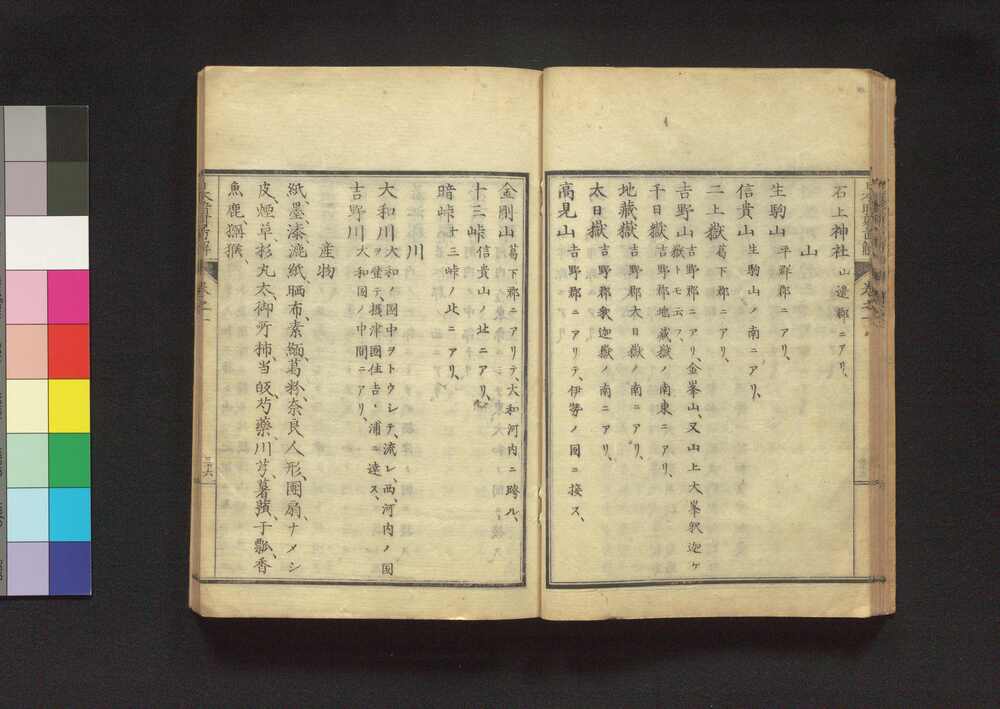 石上神社 山邊郡ニアリ、
山
生駒山 平群郡ニアリ、
信貴山 生駒山ノ南ニアリ、
二上嶽 葛下郡ニアリ、
吉野山 吉野郡ニアリ、金峯山、又山上大峯釈迦ケ
嶽トモ云フ、
千日嶽 吉野郡地蔵嶽ノ南東ニアリ、
地藏嶽 吉野郡大日嶽ノ南ニアリ、
太日嶽 吉野郡釈迦嶽ノ南ニアリ、
高見山 吉野郡ニアリテ、伊勢ノ国ニ接ス、
金剛山 葛下郡ニアリテ、大和河内ニ跨ル、
十三峠 信貴山ノ北ニアリ、
暗峠 十三峠ノ北ニアリ、
川
大和川 大和ノ國中ヲトウシテ、流レ、西、河内ノ国
ヲ歴テ、摂津國住吉ノ浦ニ達ス、
吉野川 大和国ノ中間ニアリ、
産物
紙、墨、漆、漉紙、晒布、素緬、葛粉、奈良人形、團扇、ナメシ
皮、煙草、杉丸太、御所柿、当皈、芍藥、川芎、蓍蘋、干瓢、香
魚、鹿、獼猴、
三十六